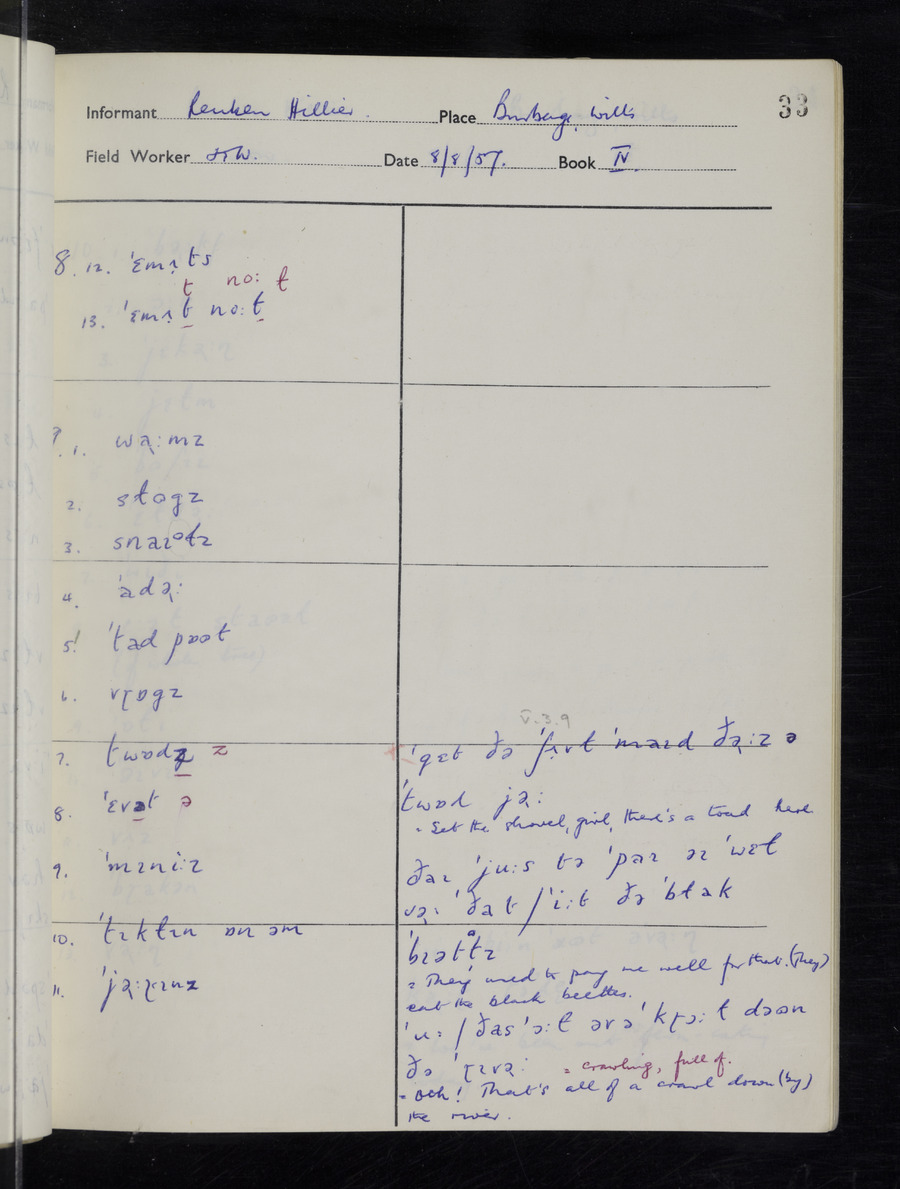 33
Informant Reuben Hillier. Place Burbage, Wilts
Field Worker Date 8/8/57. Book IV.
8. 12. 'ɛmɪ̣ts
t no: t
13. 'ɛmɪ̣t no:t
9. 1. wə̣:mz
2. stɒgz
3. snaɪətz
4. 'adə̣:
5. 'tad pɒʊt
6. vɽɒgz
7. twɒdz z
8. 'ɛvət ə
9. 'mɪni:z
10. 'tɪktɪn ɒn əm
11. 'jə̣:ɽɪnz
V.3.9
'gɛt ðə 'ʃɪvt 'maɪd ðə̣:z ə
'twɒd jə̣:
= Get the shovel, girl, there's a toad here
ðaɪ 'ju:s tə 'paɪ əɪ 'wɛt
və̣: 'ðat / i:t ðə 'btak
'bɪəttz
= They used to pay me well for that. (They)
eat the black beetles.
'u: / ðas 'ɔ:t əvə 'kɽɔ:t dəʊn
ðə 'ɽɪvə̣: = crawling, full of.
= Ooh! That's all of a crawl down (by)
the river.